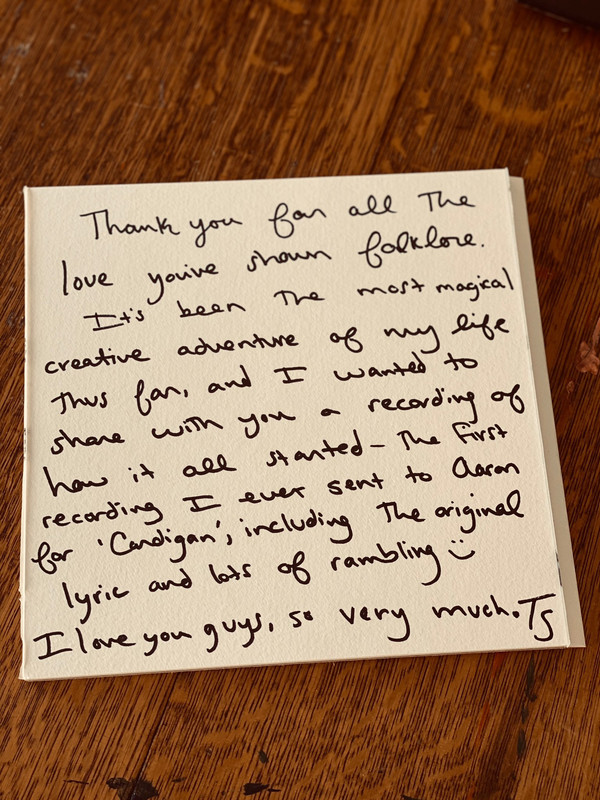 Thank you for all the
love you've shown folklore.
It's been the most magical
creative adventure of my life
thus far, and I wanted to
share with you a recording of
how it all started - the first
recording I ever sent to Aaron
for 'Cardigan', including the original
lyric and lots of rambling :)
I love you guys, so very much. TS